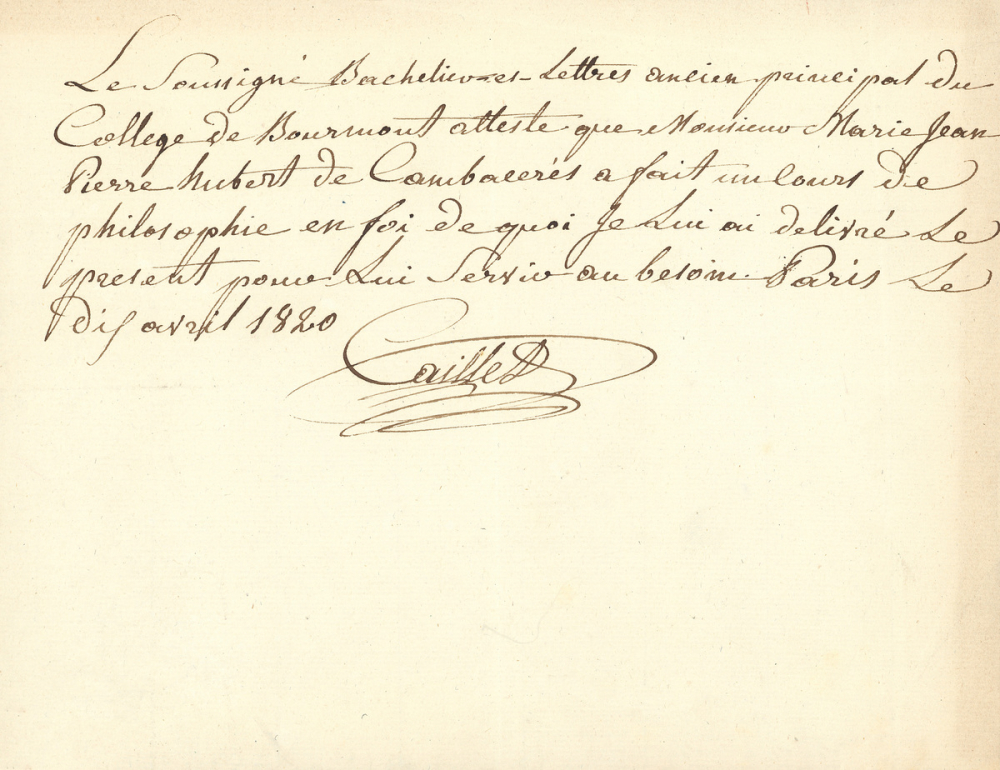 Le Soussigné Bachelier-es-Lettres ancien principal du
College de Bourmont atteste que Monsieur Marie Jean
Pierre hubert de Cambacerés a fait un Cours de
philosophie en foi de quoi Je Lui ai delivré Le
present pour Lui Servir au besoin. Paris Le
dix avril 1820
Caillet